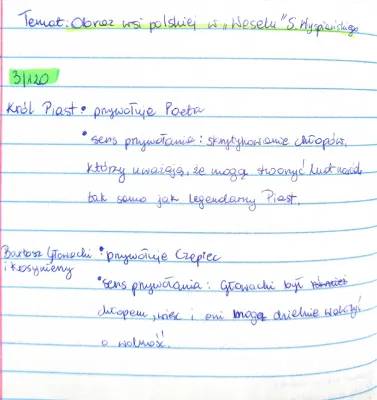 Temat: Obraz wsi polskiej w „Weselu" S. Wyspiańskiego
3/120
Król Piast • przywołuje Poeta
• sens przywołania: skrytykowanie chłopów,
którzy uważają, że mogą stworzyć lud
tak samo jak legendarny Piast.
Bartosz Głowacki • przywołuje Czepiec
i Kosynierzy
• sens przywołania: Głowacki był również
chłopem, więc i oni mogą dzielnie walczyć
o wolność.